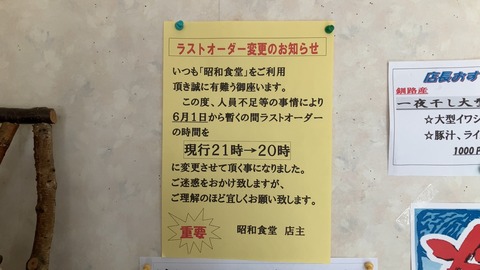 ラストオーダー変更のお知らせ
いつも「昭和食堂」をご利用
頂き誠に有難う御座います。
この度、人員不足等の事情により
6月1日から暫くの間ラストオーダー
の時間を
現行21時→20時
に変更させて頂く事になりました。
ご迷惑をおかけ致しますが、
ご理解のほど宜しくお願い致します。
重要
昭和食堂 店主
店長おす
釧路産
一夜干し大型
☆大型イワシ
☆豚汁、ライ
1000F